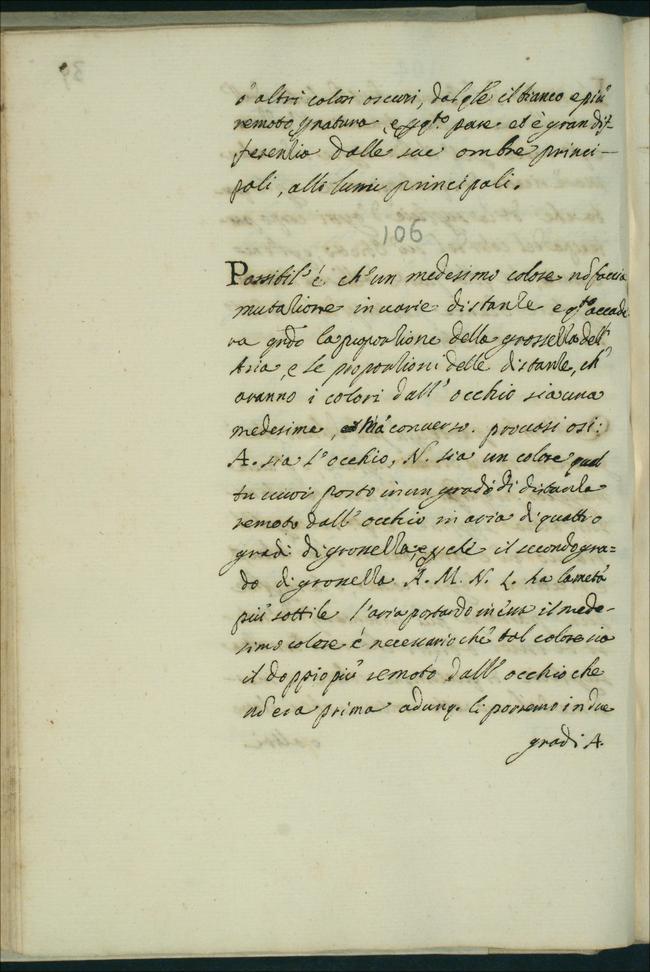 ò altri colori oscuri, dal qle il bianco e più
remoto p natura, e p qto pare et è gran dif-
ferentia dalle sue ombre princi-
pali, alli lumi principali.
106
Possibil' è ch'un medesimo colore nō faccia
mutatione in varie distantie e qto accade
ra qndo la proportione della grossezza dell'
Aria, e le proportioni delle distantie, ch'
avanno i colori dall' occhio sia una
medesime, ma converso. provasi osi:
A. sia l'occhio, N. sia un colore qual
tu vuoi posto in un grado di distantia
remoto dall' occhio in aria di quattro
gradi di grossezza, e pchè il secondo gra=
do di grossezza A. M. N. L. ha la metà
più sottile l'aria portando in essa il mede-
simo colore è necessario che tal colore sia
il doppio più remoto dall' occhio che
nō era prima adunq. li porremo in due
gradi A.